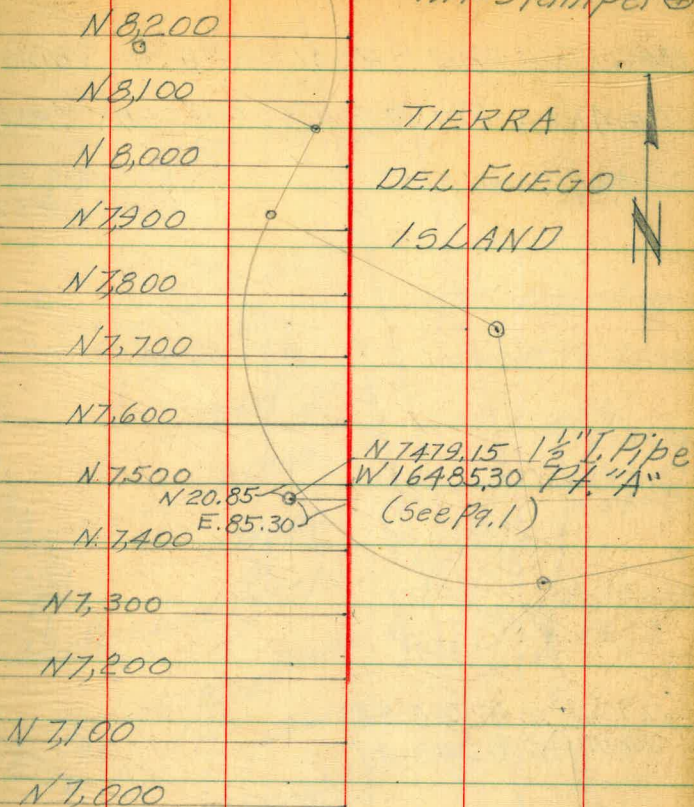 N 8,200
N 8,100
N 8,000
N 7,900
N 7,800
N 7,700
N 7,600
N 7,500
N. 7,400
N 7,300
N 7,200
N 7,100
N 7,000
TIERRA
DEL FUEGO
ISLAND
N
N 7479.15 1½" I. Pipe
W 16485.30 Pt. "A"
(See pg. 1)
N 20.85
E. 85.30